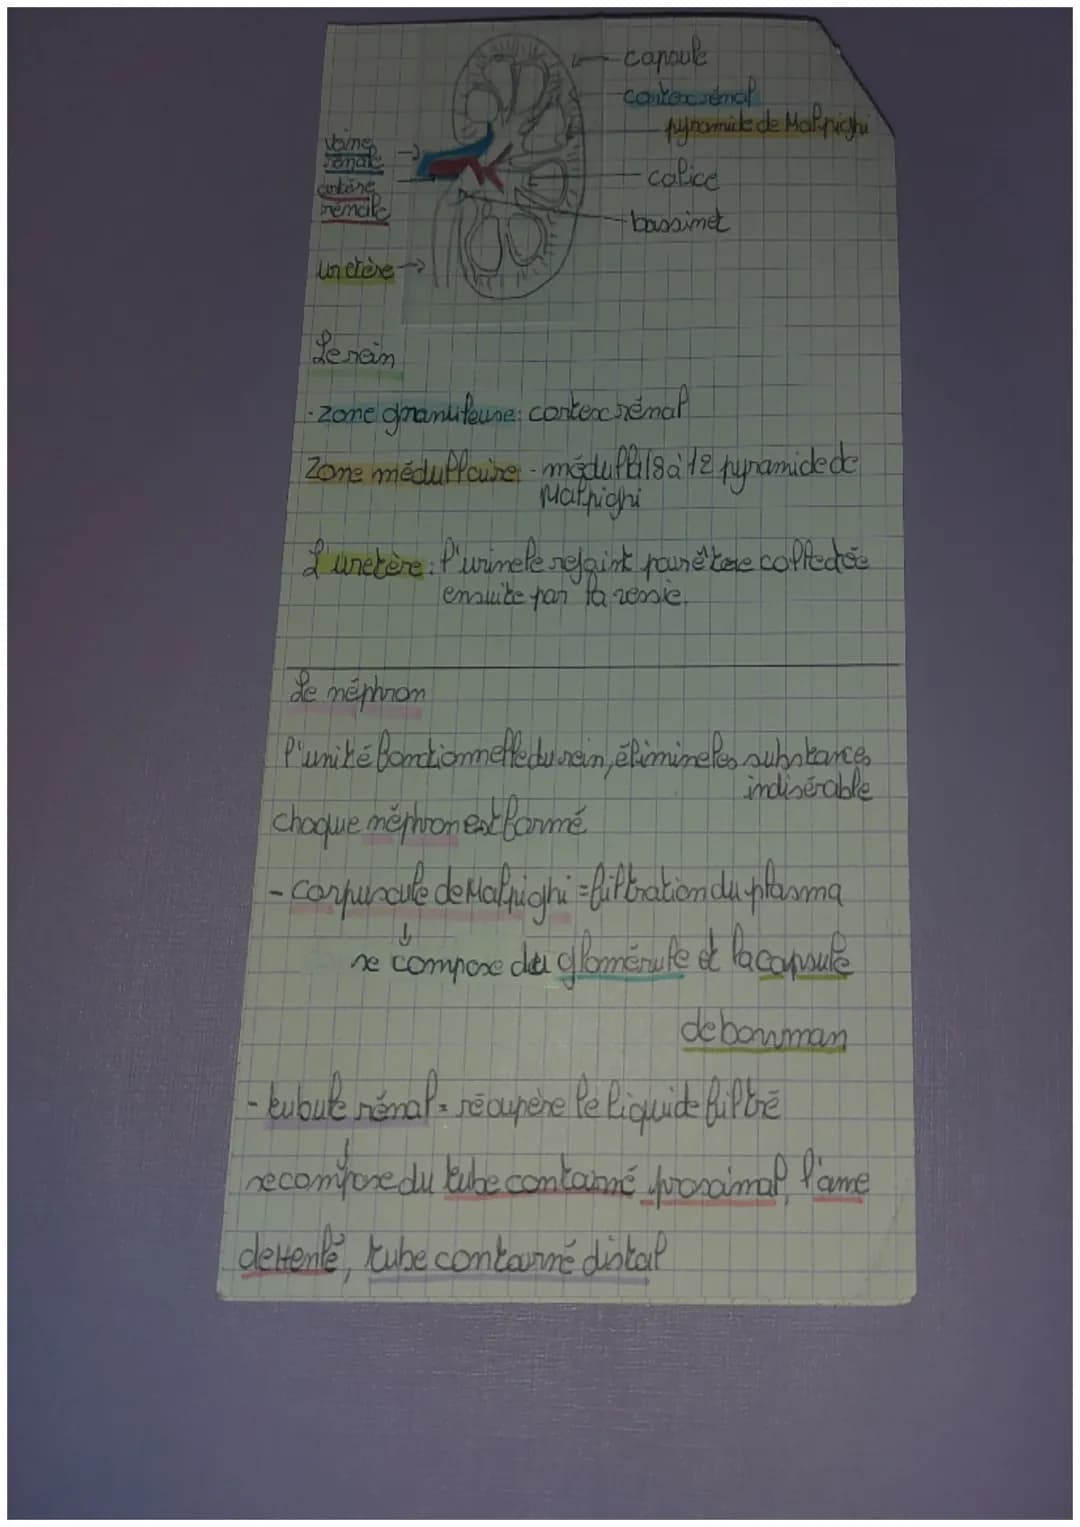 capsule
cortex rénal
pyramide de Malpighi
calice
bassinet
veine
rénale
artère
rénale
uretère
Le rein
- zone granuleuse: cortex rénal
Zone médullaire - médulla (8 à 12 pyramide de
Malpighi
L'uretère: l'urine le rejoint pour être collectée
ensuite par la vessie.
Le néphron
l'unité fonctionnelle du rein, élimine les substances
indisérable
chaque néphron est formé
- corpuscule de Malpighi = filtration du plasma
se compose du glomérule et la capsule
de bowman
- tubule rénal = récupère le liquide filtré
se compose du tube contourné proximal, l'ame
de Henlé, tube contourné distal